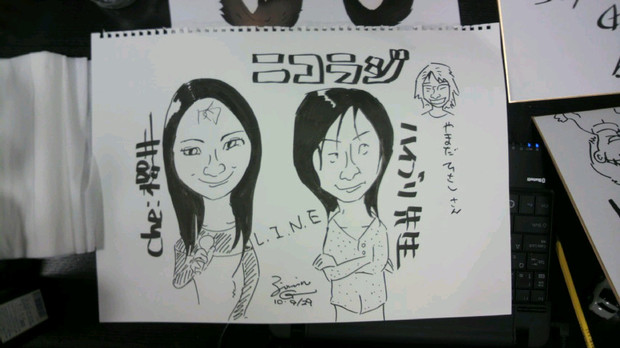 ニコラジ
che:櫻井
ハマダリ先生
やまだひさしさん
L.I.N.E
10.9/29